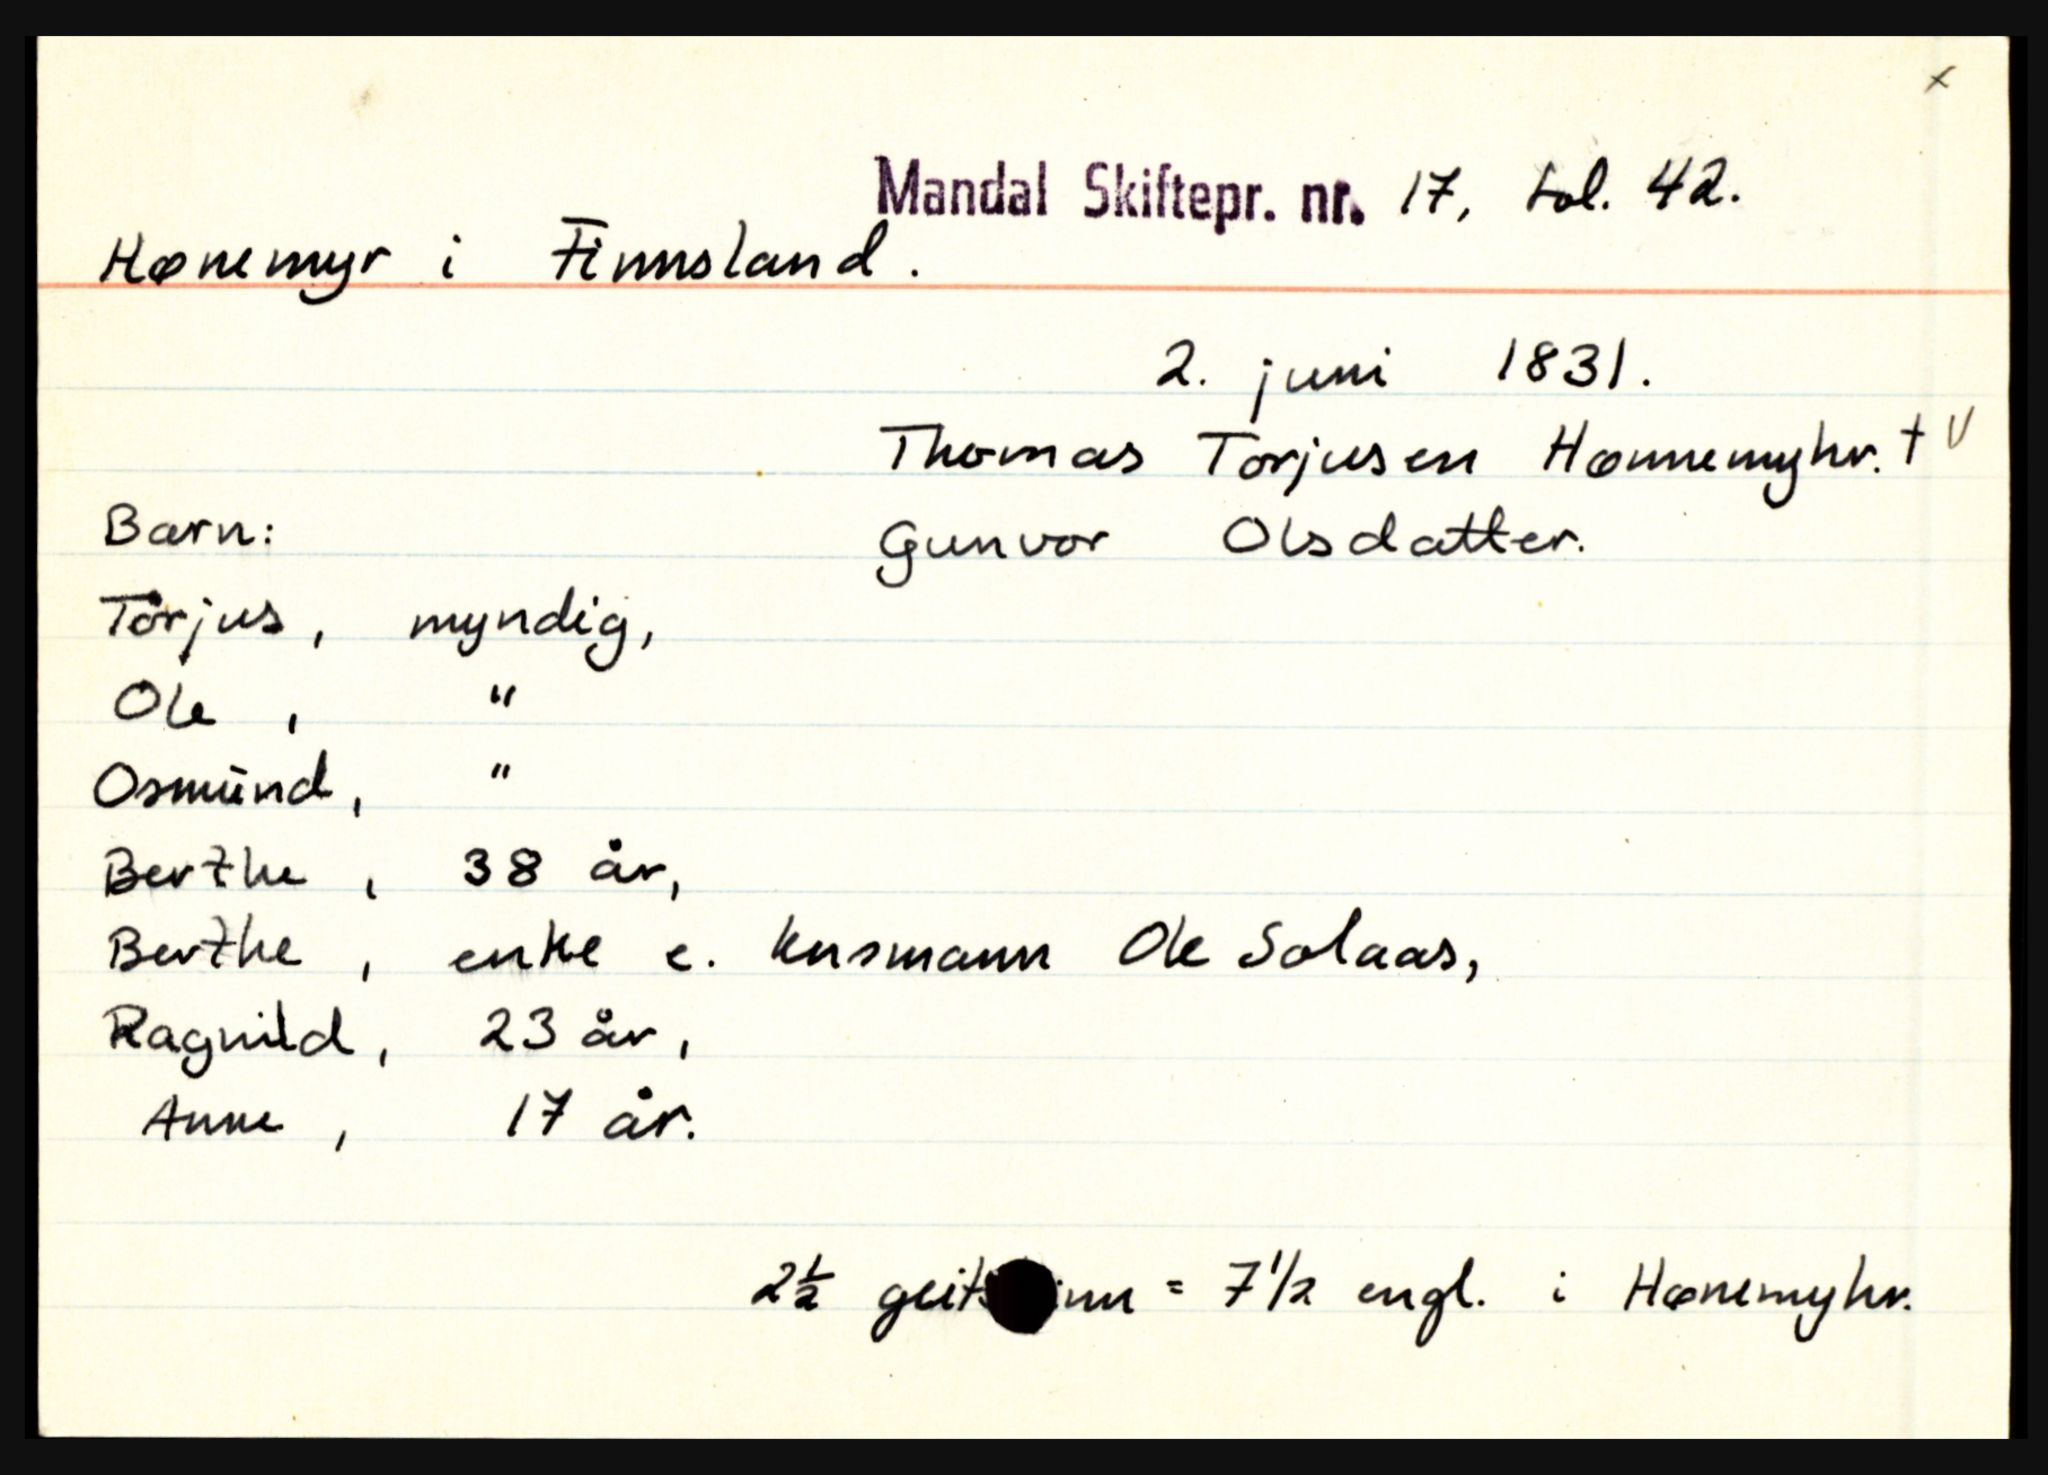 x
Mandal Skiftepr. nr. 17, fol. 42.
Hønemyr i Finnsland.
2. juni 1831.
Thomas Torjusen Hønnemyhr. † V
Gunvor Olsdatter.
Barn:
Torjus, myndig,
Ole, "
Osmund, "
Berthe, 38 år,
Berthe, enke e. husmann Ole Solaas,
Ragnild, 23 år,
Anne, 17 år.
2½ geits inn = 7 1/2 engl. i Hønemyhr.